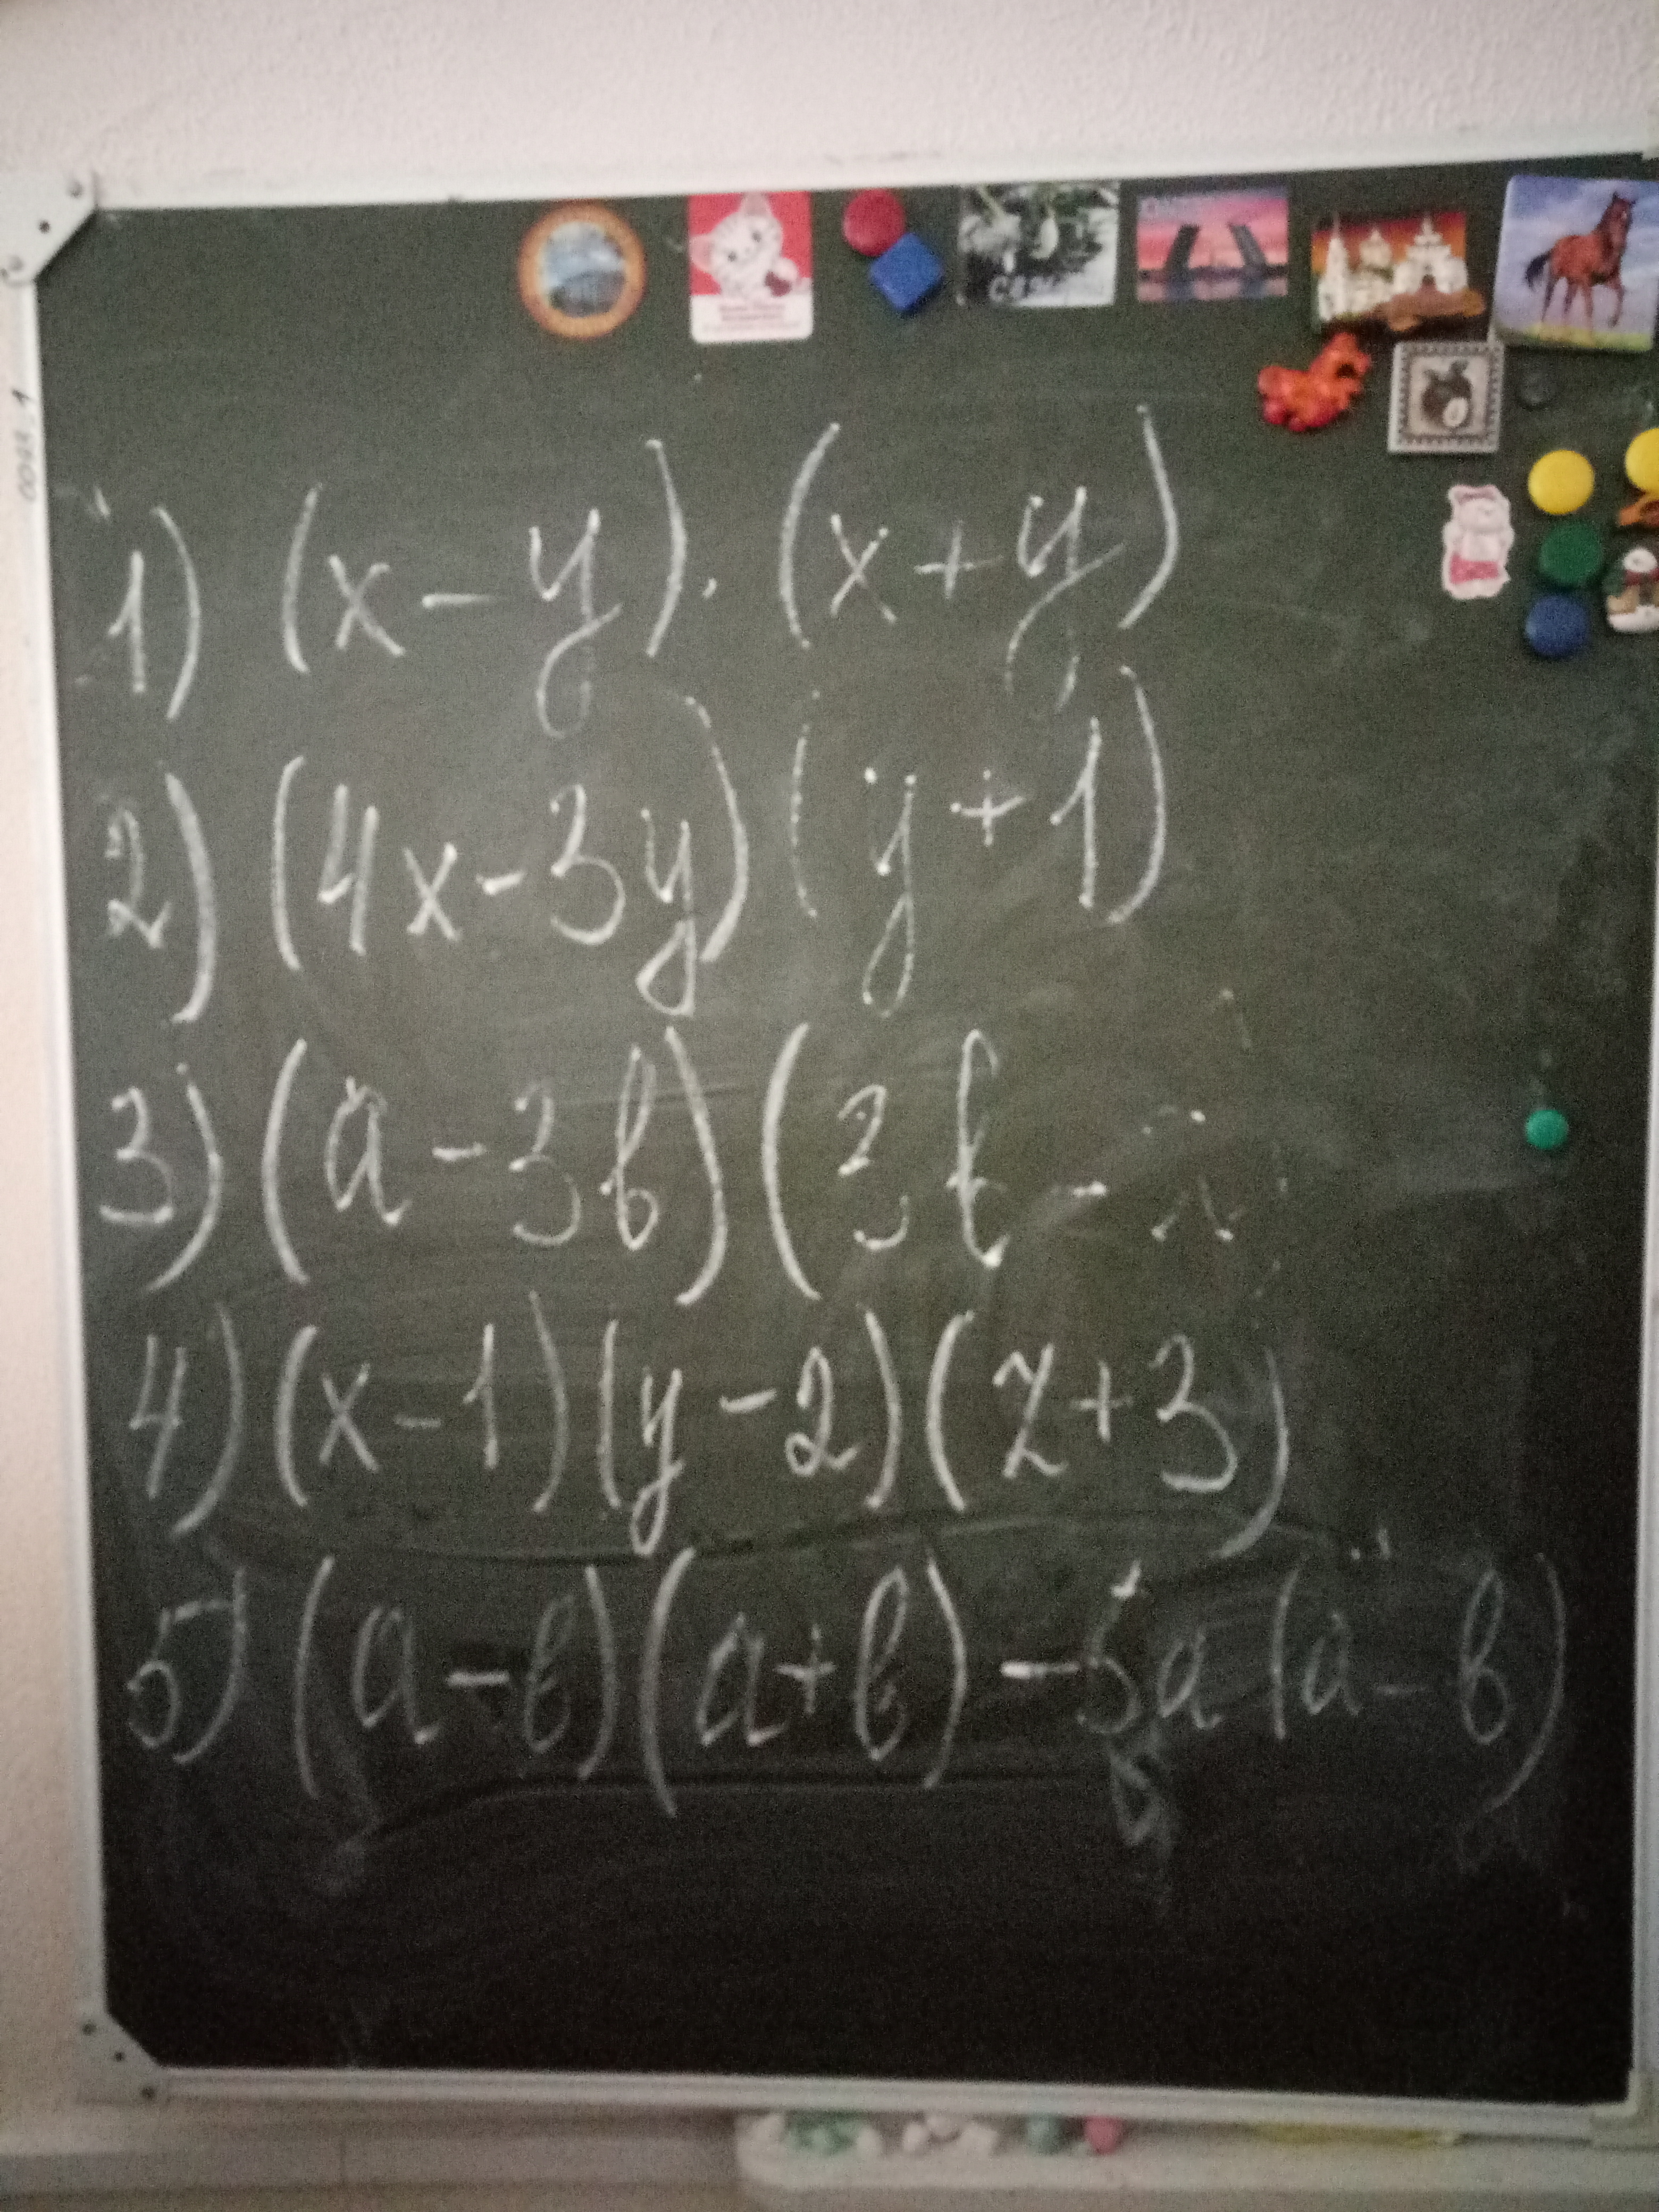 1) (x-y)·(x+y)
2) (4x-3y)(y+1)
3) (a-3b)(3b-
4) (x-1)(y-2)(z+3)
5) (a-b)(a+b)-5a(a-b)